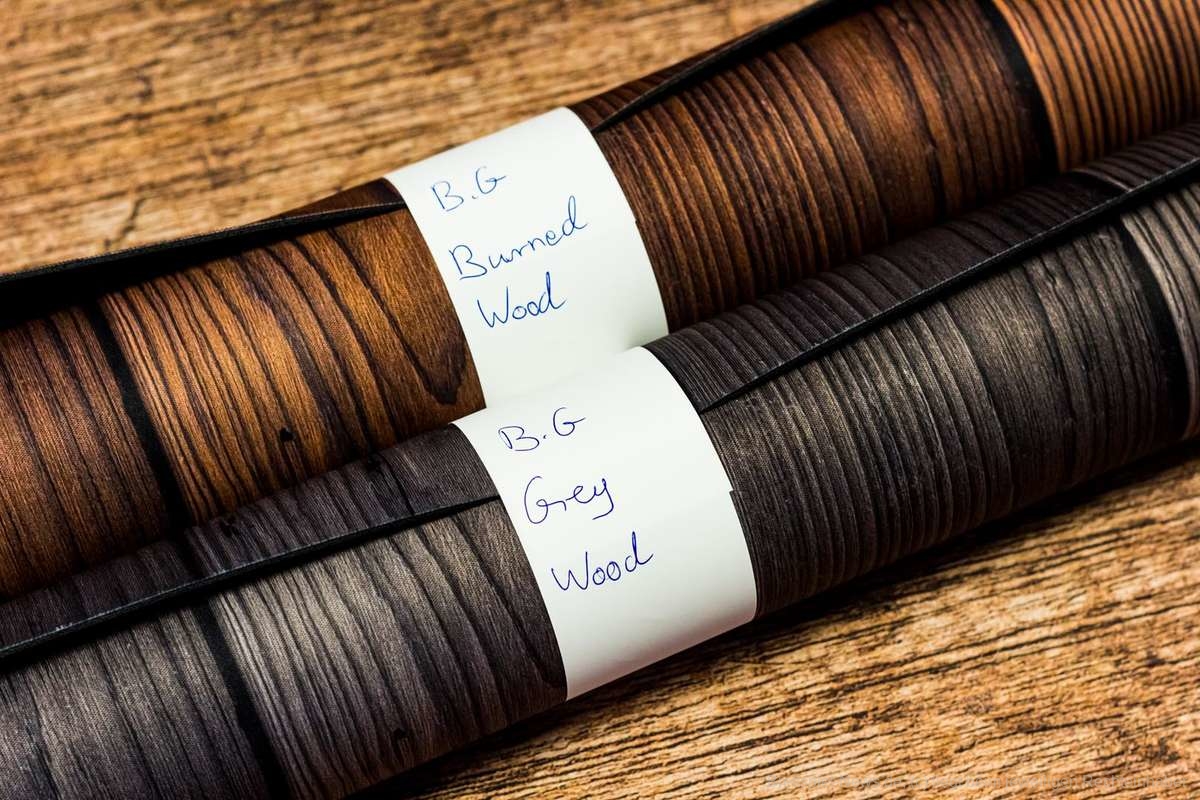 B.G
Burned
Wood
B.G
Grey
Wood